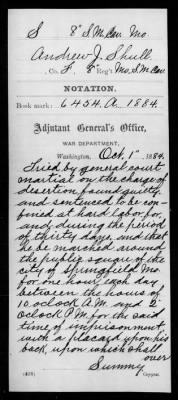 S 8" S.M.Cav. Mo
Andrew J. Shull
, Co. F, 8" Reg't Mo. S.M. Cav.
NOTATION.
Book mark: 6454. A. 1884.
Adjutant General's Office,
WAR DEPARTMENT,
Washington, Oct. 1", 1884.
Tried by general court
martial on the charge of
desertion, found guilty
and sentenced to be con-
fined at hard labor for,
and during the period
of thirty days and that
he be marched around
the public square of the
city of Springfield Mo.
for one hour each day
between the hours of
10 o'clock A.M. and 2
o'clock P.M. for the said
time of imprisonment
with a placard upon his
back, upon which shall
over
Summy
Copyist.